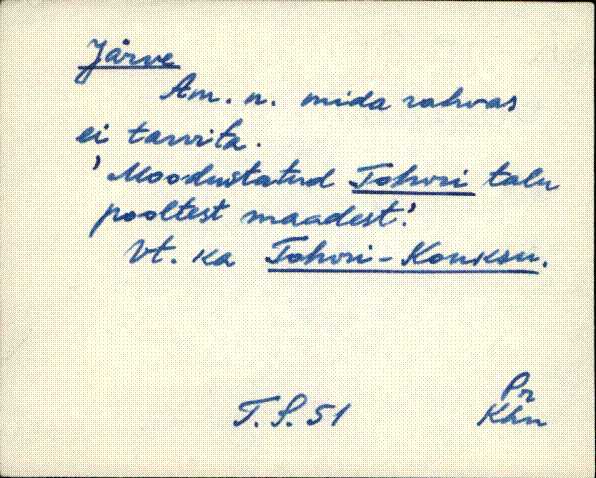 Järve
Am. n. mida rahvas
ei tarvita.
'Moodustatud Tohvri talu
pooltest maadest.'
Vt. ka Tohvri-Konksu.
T. S. 51
Pr
Khn